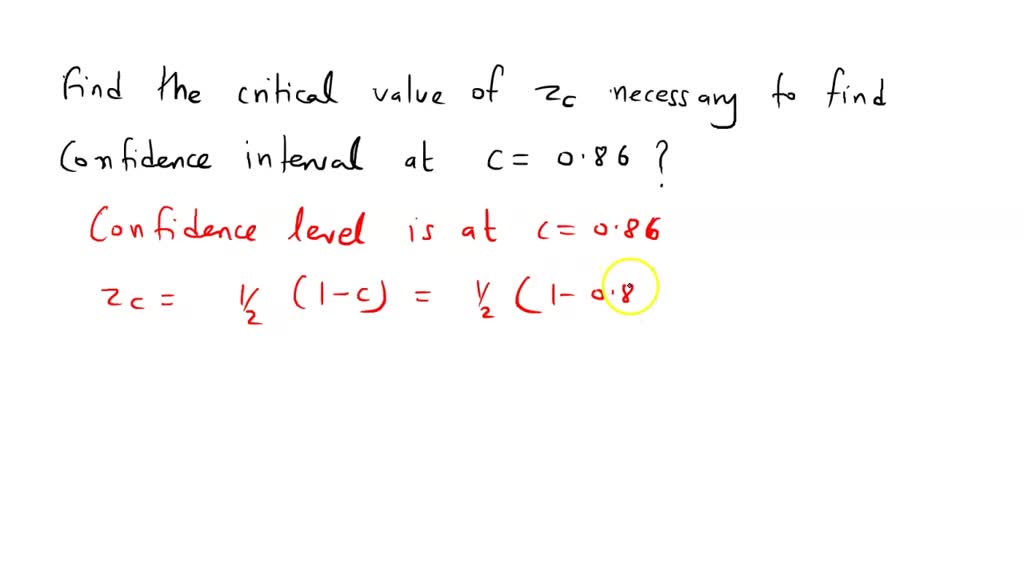 Find the critical value of zc necessary to find
Confidence interval at c = 0.86 ?
Confidence level is at c = 0.86
zc = 1/2 (1-c) = 1/2 (1- 0.8